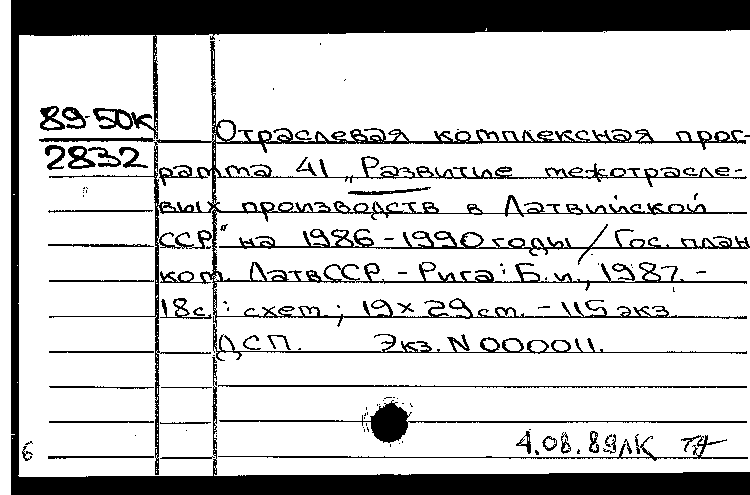 89-50к
2832
Отраслевая комплексная прог-
рамма 41 „Развитие межотрасле-
вых производств в Латвийской
ССР" на 1986-1990 годы / Гос. план.
ком. ЛатвССР. - Рига: Б.и., 1987. -
18с.: схем.; 19×29см. - 115 экз.
ДСП. Экз. N 000011.
4.08.89 ЛК
6